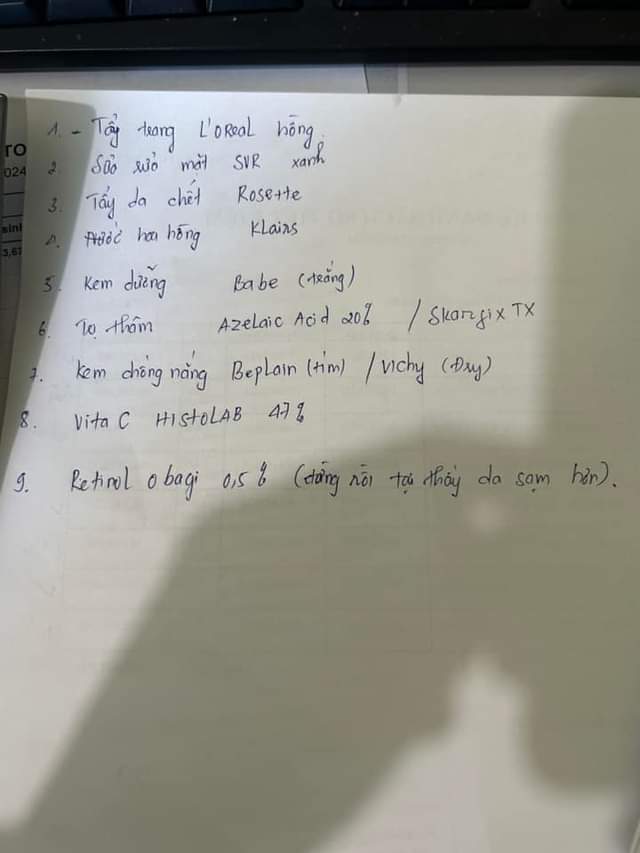 TO
024
sinh
3,67
1. - Tẩy trang L'OReal hồng.
2. Sữa rửa mặt SVR xanh
3. Tẩy da chết Rosette
4. Nước hoa hồng Klairs
5. Kem dưỡng Babe (trắng)
6. Trị thâm Azelaic Acid 20% / Skarfix TX
7. Kem chống nắng Beplain (tím) / Vichy (Dry)
8. Vita C HISTOLAB 47%
9. Retinol obagi 0,5% (dừng rồi tại thấy da sạm hơn).